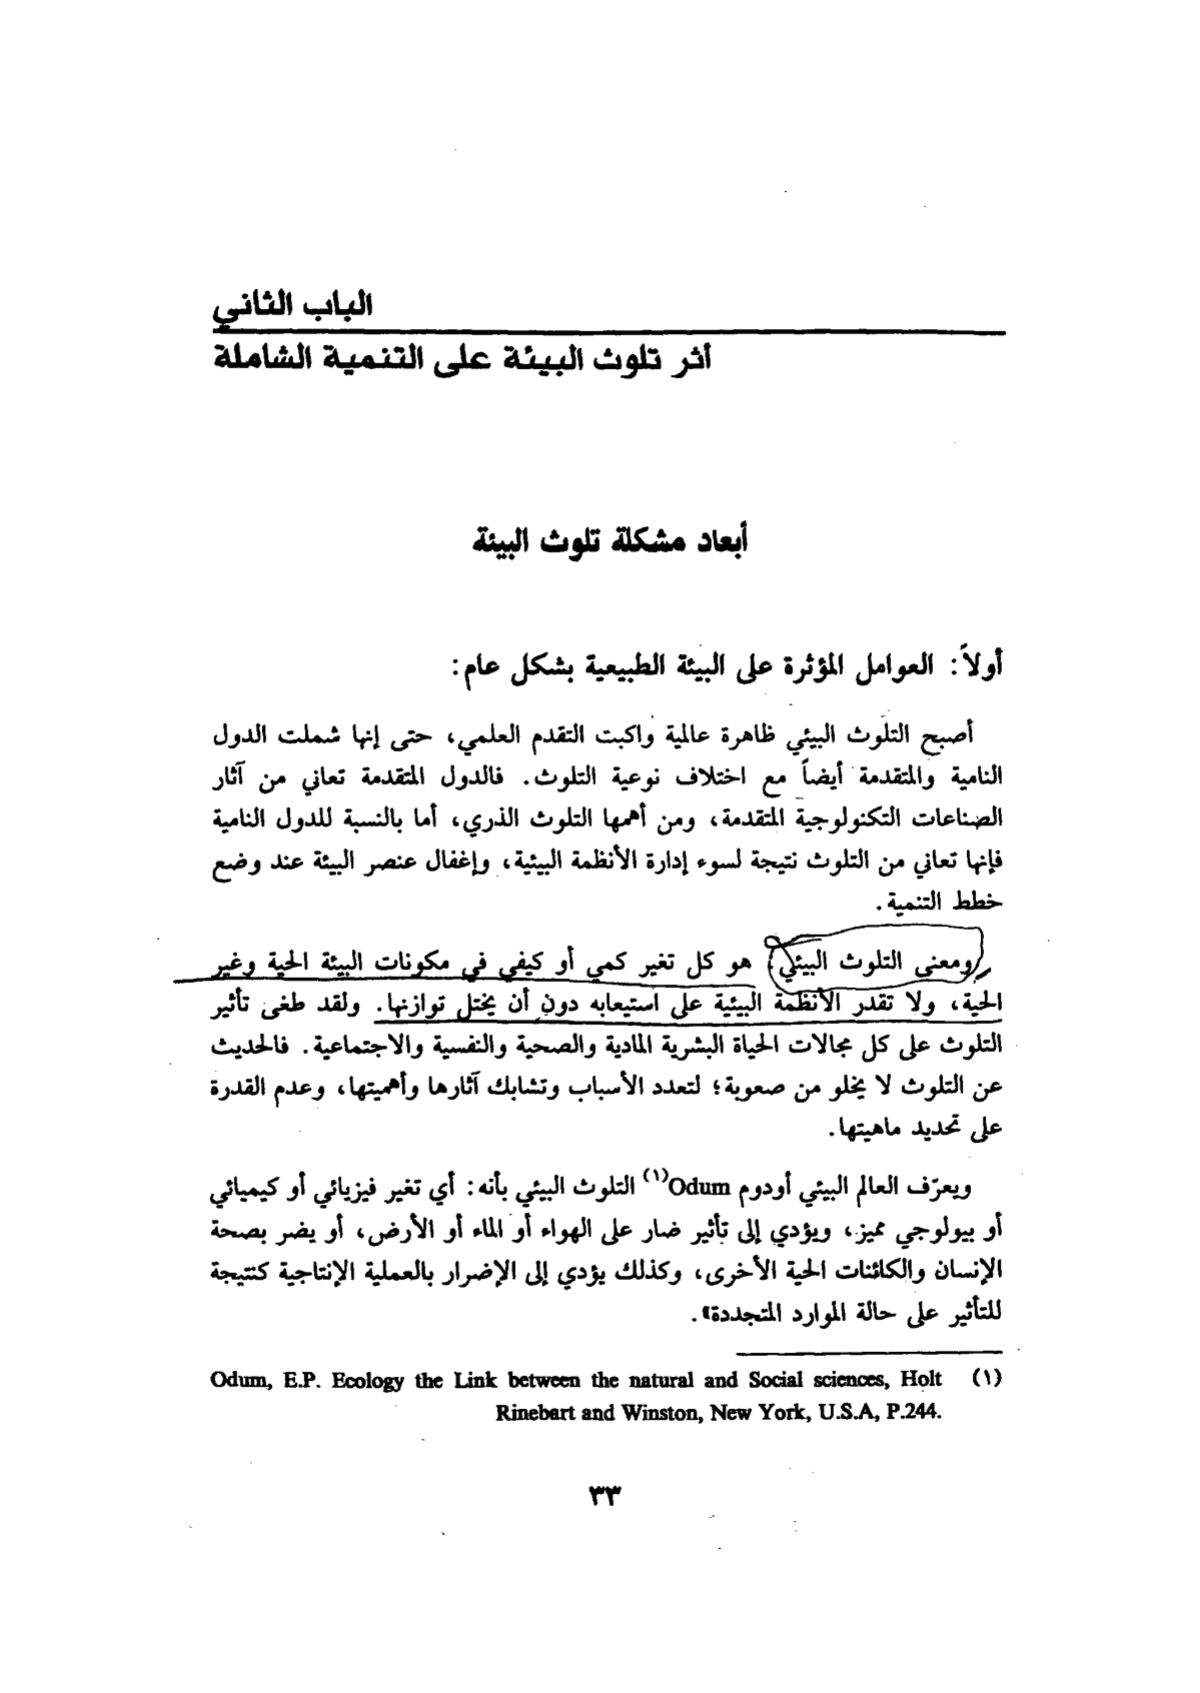 الباب الثاني
أثر تلوث البيئة على التنمية الشاملة
أبعاد مشكلة تلوث البيئة
أولاً: العوامل المؤثرة على البيئة الطبيعية بشكل عام:
أصبح التلوث البيئي ظاهرة عالمية واكبت التقدم العلمي، حتى إنها شملت الدول
النامية والمتقدمة أيضاً مع اختلاف نوعية التلوث. فالدول المتقدمة تعاني من آثار
الصناعات التكنولوجية المتقدمة، ومن أهمها التلوث الذري، أما بالنسبة للدول النامية
فإنها تعاني من التلوث نتيجة لسوء إدارة الأنظمة البيئية، وإغفال عنصر البيئة عند وضع
خطط التنمية.
ومعنى التلوث البيئي هو كل تغير كمي أو كيفي في مكونات البيئة الحية وغير
الحية، ولا تقدر الأنظمة البيئية على استيعابه دون أن يختل توازنها. ولقد طغى تأثير
التلوث على كل مجالات الحياة البشرية المادية والصحية والنفسية والاجتماعية. فالحديث
عن التلوث لا يخلو من صعوبة؛ لتعدد الأسباب وتشابك آثارها وأهميتها، وعدم القدرة
على تحديد ماهيتها.
ويعرّف العالم البيئي أودوم Odum(١) التلوث البيئي بأنه: أي تغير فيزيائي أو كيميائي
أو بيولوجي مميز، ويؤدي إلى تأثير ضار على الهواء أو الماء أو الأرض، أو يضر بصحة
الإنسان والكائنات الحية الأخرى، وكذلك يؤدي إلى الإضرار بالعملية الإنتاجية كنتيجة
للتأثير على حالة الموارد المتجددة».
(١) Odum, E.P. Ecology the Link between the natural and Social sciences, Holt
Rinebart and Winston, New York, U.S.A, P.244.
٣٣